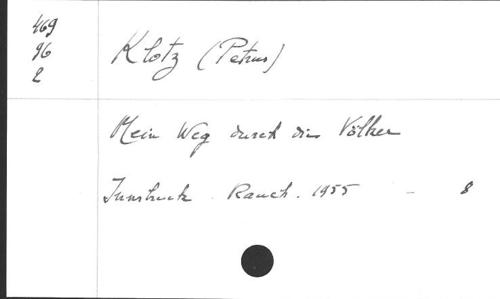 469
96
2
Klotz (Petrus)
Mein Weg durch die Völker
Innsbruck . Rauch . 1955 - 8